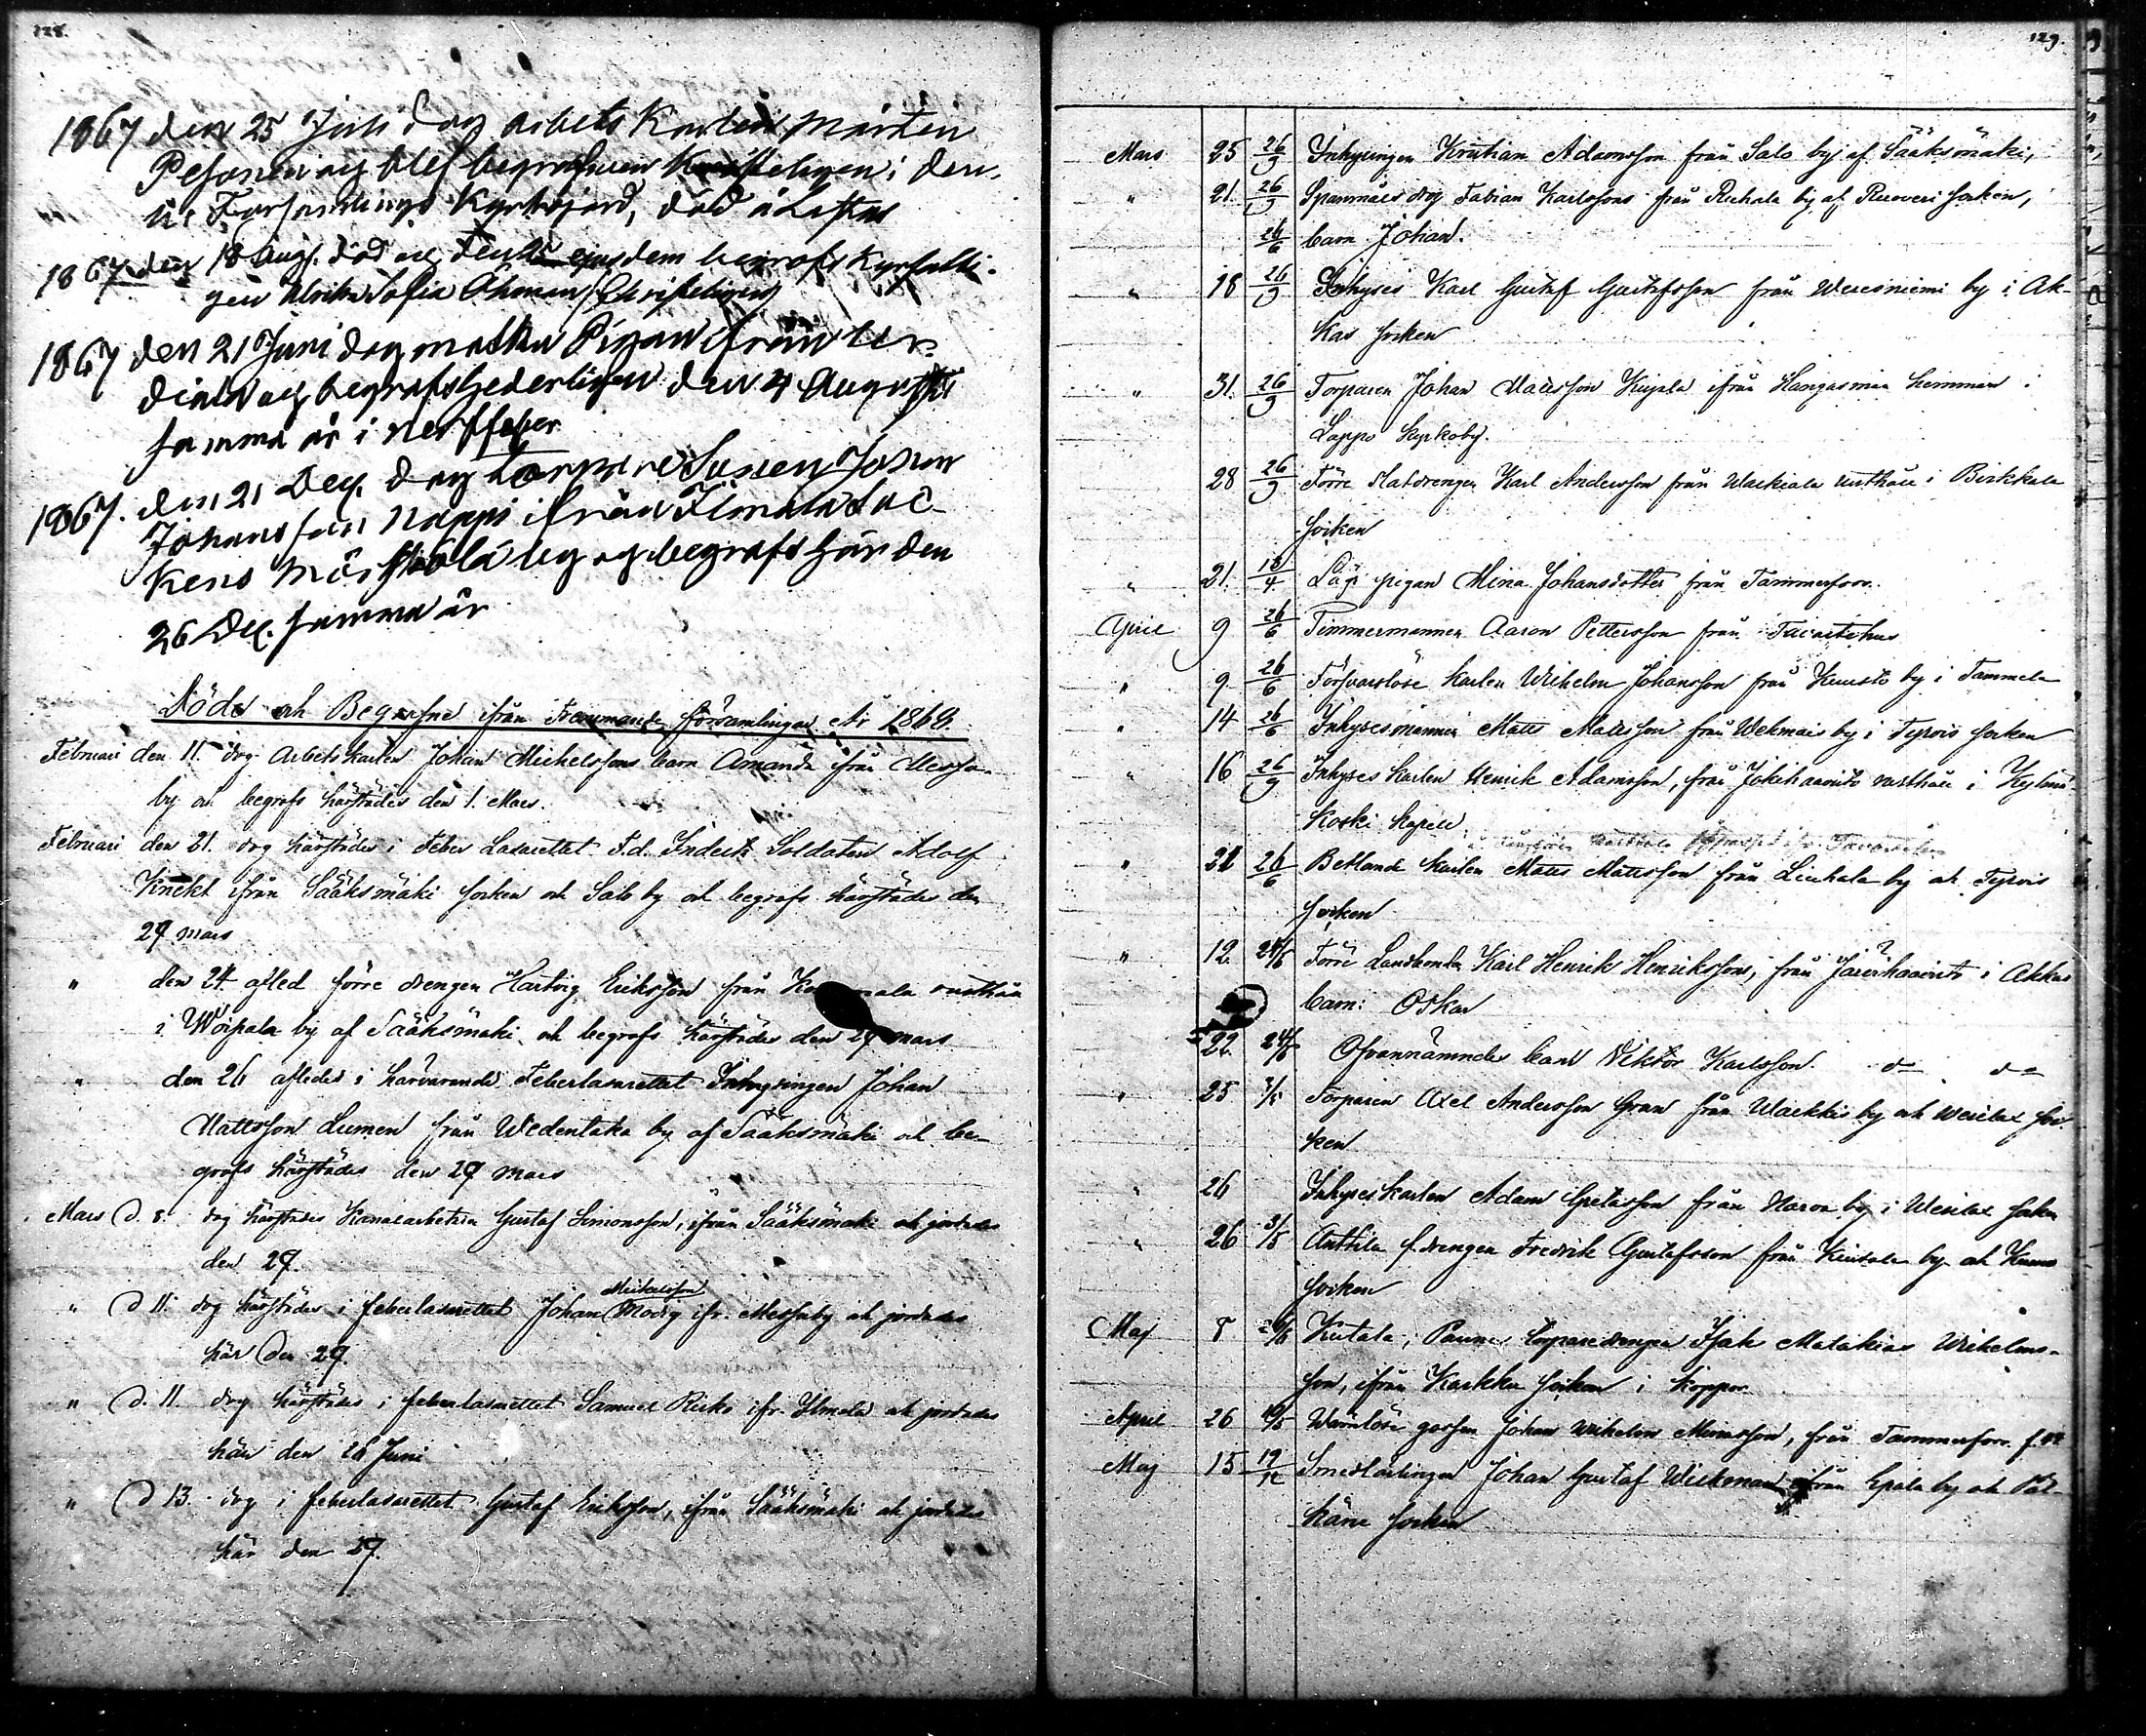 128.
1867 den 25 Juli dog arbets Karlen Mårten
Pesonen og blef begrafven Kristeligen i den-
na Forsamlings Kyrkogård, död å
1867 den 18 Aug. död og den 25 ejusdem begrofs
gen Ulrika Sofia Öhman Christeligen
1867 den 21 Juni dog Pigan ifrån
og begrofs hederligen den 4 Augusti
samma år i nerffeber
1867. den 21 Dec. dog torpare Sonen Johan
Johansson Nappi ifrån Ilmola Soc-
kens by og begrofs här den
26 Dec. samma år
Döde och Begrafne ifrån Främmande församlingar År 1868.
Februari den 11. dog Arbets Karlen Johan Michelssons barn Amanda ifrån Messu-
by och begrofs härstädes den 1. Mars.
Februari den 21. dog härstädes i Feber Lasarettet F.d. Indelta Soldaten Adolf
Knekt ifrån Sääksmäki Socken och Salo by och begrofs härstädes den
29 mars
" den 24 afled förre drengen Hartvig Eriksson från rusthåll
i Woipala by af Sääksmäki och begrofs härstädes den 29 mars
" den 26 afledes i härvarande Feberlasarettet Inhysingen Johan
Mattsson Lumen från Wedentaka by af Sääksmäki och be-
grofs härstädes den 29 mars
Mars d. 8. dog härstädes Kanalarbetaren Gustaf Simonsson, ifrån Sääksmäki och jordades
den 29.
Michelsson
" d 11. dog härstädes i feberlasarettet Johan Modig ifr. Messuby och jordades
här den 29.
" d. 11. dog härstädes i feberlasarettet Samuel Risko ifr. Ilmola och jordades
här den 26 Juni
" d 13. dog i feberlasarettet Gustaf Eriksson, ifrån Sääksmäki och jordades
här den 29.
129.
Mars 25 26/9 Inhysingen Kristian Adamsson från Salo by af Sääksmäki,
" 21. 26/9 Spanmåls drg Fabian Karlssons från Ruhala by af Ruovesi Socken,
26/6 barn Johan.
" 18 26/9 Inhyses Karl Gustaf Gustafsson från Weresniemi by i Ak-
kas Socken
" 31. 26/9 Torparen Johan Mattsson ifrån Kangasmaa hemman i
Lappo Kyrkoby.
28 26/9 Förre Statdrengen Karl Andersson från rusthåll i Birkkala
Socken
" 21. 13/4 Lösa pigan Mina Johansdotter från Tammerfors.
April 9 26/6 Timmermannen Aaron Pettersson från Tavastehus
" 9. 26/6 Försvarslöse Karlen Wilhelm Johansson från Kuusto by i Tammela
" 14 26/6 Inhysesmannen Matts Mattsson från Wehmais by i Tyrvis Socken
" 16 26/9 Inhyses Karlen Henrik Adamsson, från rusthåll i Kylmä-
koski Kapell
" 21 26/6 Betlande Karlen Matts Mattsson från Liuhala by och Tyrvis
Socken
" 12. 24/6 Förre Landbonden Karl Henrik Henrikssons, från i Akkas
barn: Oskar
22. 24/6 Ofvannämndes barn Viktor Karlsson. do do
" 25 3/5 Torparen Axel Andersson Gran från by och Wesilax Soc-
ken
" 26 Inhyses Karlen Adam Gustafsson från Narva by i Wesilax Socken
" 26 3/5 Anttila f. drengen Fredrik Gustafsson från by och
Socken
Maj 8 Kutala, torparedrengen Isak Malakias Wilhelms-
son, ifrån Karkku Socken i koppor.
April 26 10/5 Wärnlöse gossen Johan Wilhelm, från Tammerfors
Maj 15 19/12 Smedlärlingen Johan Gustaf Wickman ifrån Epala by och Päl-
käne Socken